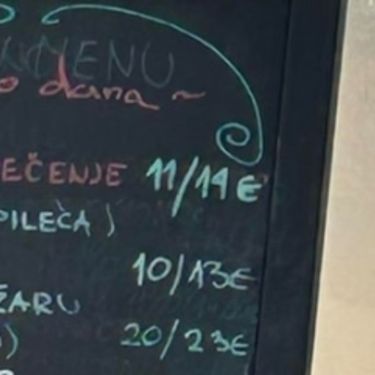 MENU
dana ~
EČENJE 11/14€
PILEĆA)
10/13€
ŽARU
) 20/23€